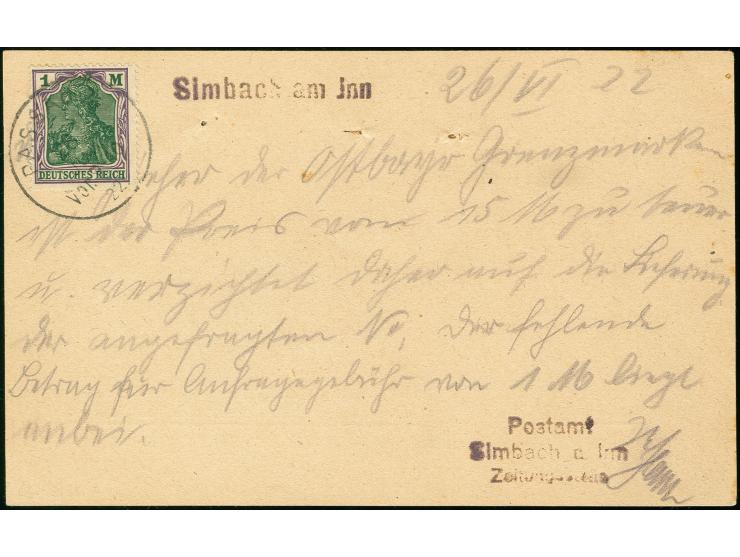 1 M
DEUTSCHES REICH
Simbach am Inn
26/VI 22
PASS
Vor
22
der Ostbayr Grenzmarken
ist der Preis von 15 M zu teuer
u. verzichtet daher auf die Lieferung
der angefragten No, der fehlende
Betrag für Anfragegebühr von 1 M liegt
anbei.
Postamt
Simbach a Inn
Zeitungsstelle